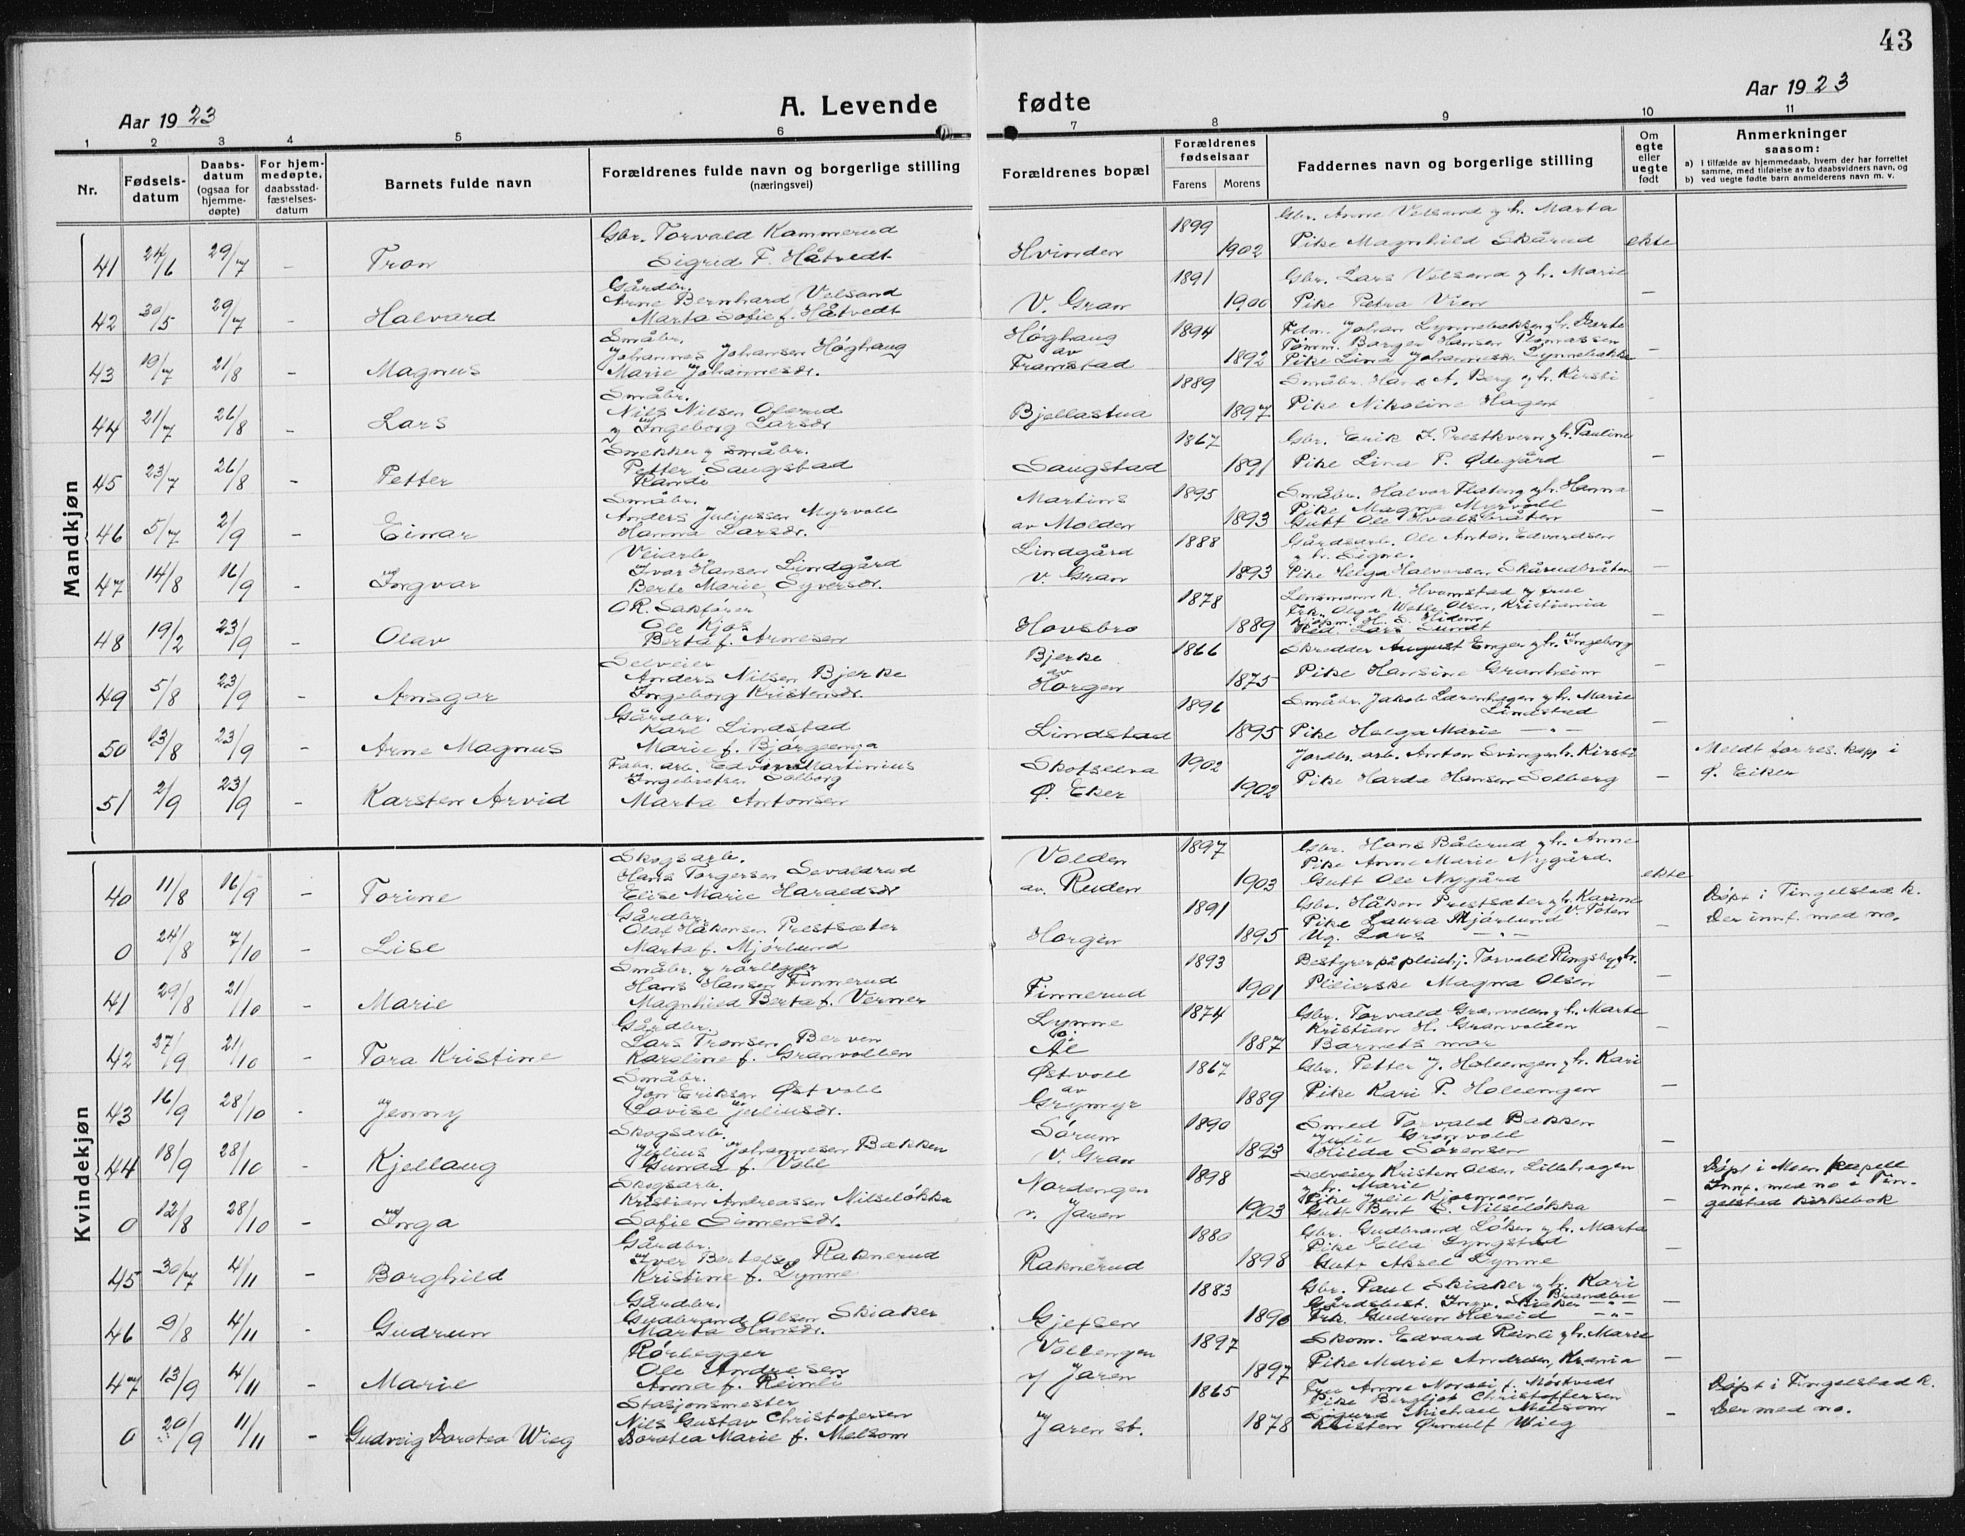 43
Aar 1923
A. Levende fødte
Aar 1923
1 2 3 4 5 6 7 8 9 10 11
Nr.
Fødsels-
datum
Daabs-
datum
(ogsaa for
hjemme-
døpte)
For hjem-
medøpte,
daabsstad-
fæstelses-
datum
Barnets fulde navn
Forældrenes fulde navn og borgerlige stilling
(næringsvei)
Forældrenes bopæl
Forældrenes
fødselsaar
Farens Morens
Faddernes navn og borgerlige stilling
Om
egte
eller
uegte
født
Anmerkninger
saasom:
a) i tilfælde av hjemmedaab, hvem der har forrettet
samme, med tilføielse av to daabsvidners navn, og
b) ved uegte fødte barn anmelderens navn m. v.
Mandkjøn
41 24/6 29/7 - Tron
Gbr. Torvald Kammerud
Sigrid F. Håtvedt
Hvinden 1899 1902
Gbr. Arne Velsand g h. Marta
Pike Magnhild Skårud ekte
42 30/5 29/7 - Halvard
Gårdbr.
Arne Bernhard Velsand
Marta Sofie f. Håtvedt
V. Gran 1891 1900
Gbr. Lars Velsand g h. Marie
Pike Petra Vien -
43 19/7 21/8 - Magnus
Småbr.
Johannes Johansen Høghaug
Marie Johannesdr.
Høghaug
av
Framstad 1894 1892
Fdm. Johan Lynnebakken g h. Marte
Tømm. Borger Hansen Thomassen
Pike Lina Johannesdr. Lynnebakke -
44 21/7 26/8 - Lars
Småbr.
Nils Nilsen Ofsrud
g Ingeborg Larsdr
Bjellastua 1889 1897
Småbr. Hans A. Berg g h. Kirsti
Pike Nikoline Hagen -
45 23/7 26/8 - Petter
Snekker g småbr.
Petter Saugstad
Randi
Saugstad 1867 1891
Gbr. Erik J. Prestkvern g h. Pauline
Pike Lina P. Ødegård -
46 5/7 2/9 - Einar
Småbr.
Anders Juliussen Myrvoll
Hanna Larsdr.
Martins
av Molden 1895 1893
Småbr. Halvor Flateng g h. Hanna
Pike Magna Myrvoll
Gutt Ole Hvalsbråten -
47 14/8 16/9 - Ingvar
Veiarb.
Ivar Hansen Lindgård
Berte Marie Syversdr.
Lindgård
v. Gran 1888 1893
Gårdsarb. Ole Anton Edvardsen
g h. Signe.
Pike Helga Halvorsen Skårudbråten -
48 19/2 23/9 - Olav
O.R. Sakfører
Ole Kjos
Berta f. Arnesen
Hovsbro 1878 1889
Lensmann K. Hvamstad g frue
Frk. Olga Olsen, Kristiania
Kjøpm. H. S. Hilden
Red. Lars Lundt
49 5/8 23/9 - Ansgar
Selveier
Anders Nilsen Bjerke
Ingeborg Kristensdr.
Bjerke
av
Horgen 1866 1875
Skredder August Enger g h. Ingeborg
Pike Hansine Granheim -
50 13/8 23/9 - Arne Magnus
Gårdbr.
Kari Lindstad
Marie f. Bjørgeenga
Lindstad 1896 1895
Småbr. Jakob Lærenhagen g h. Marie
Lindstad
Pike Helga Marie —"— -
51 2/9 23/9 - Karsten Arvid
Fabr. arb. Edvin Martinius
Ingebretsen Solborg
Marta Antonsen
Skotselva
Ø. Eker 1902 1902
Jordbr. arb. Anton Svingen g h. Kirsti
Pike Harda Hansen Solberg -
Meldt for res. kap. i
Ø. Eiker
Kvindekjøn
40 11/8 16/9 - Torine
Skogsarb.
Hans Torgersen Sevaldrud
Elise Marie Haraldsdr
Volden
av. Ruden 1897 1903
Gbr. Hans Bålerud g h. Anne
Pike Anne Marie Nygård.
Gutt Ole Nygård ekte
0 24/8 7/10 - Lise
Gårdbr.
Olaf Håkonsen Prestsæter
Marta f. Mjørlund
Horgen 1891 1895
Gbr. Håkon Prestsæter g h. Karine
Pike Laura Mjørlund V. Toten
Ug. Lars —"— -
Døpt i Tingelstad k.
Der innf. med no.
41 29/8 21/10 - Marie
Småbr. g rørlegger
Hans Hansen Finnerud
Magnhild Berta f. Verner
Finnerud 1893 1901
Bestyrer på pleiehj. Torvald Ringsby g h.
Pleierske Magna Olsen -
42 27/9 21/10 - Tora Kristine
Gårdbr.
Lars Tronsen Berven
Karoline f. Granvollen
Lynne
å
Ål 1874 1887
Gbr. Torvald Granvolden g h. Marte
Kristian H. Granvolden
Barnets mor -
43 16/9 28/10 - Jenny
Småbr.
Jon Eriksen Østvoll
Lovise Juliusdr.
Østvoll
av
Grymyr 1867 1889
Gbr. Petter J. Holsengen g h. Kari
Pike Kari P. Holsengen -
44 18/9 28/10 - Kjellaug
Skogsarb.
Julius Johannesen Bakken
Gunda f. Voll
Sørum
V. Gran 1890 1893
Smed Torvald Bakken
Julie Grønvoll
Hilda Sørensen -
0 12/8 28/10 - Inga
Skogsarb.
Kristian Andreassen Nilseløkka
Sofie Simensdr.
Nordengen
v. Jaren 1898 1903
Selveier Kristen Olsen Lillehagen
g h. Marie
Pike Julie Kjosmoen
Gutt Bent E. Nilseløkka -
Døpt i Moen kapell
Innf. med no i Tin-
gelstad kirkebok
45 30/7 4/11 - Borghild
Gårdbr.
Iver Bertelsen Raknerud
Kristine f. Lynne
Raknerud 1880 1898
Gbr. Gudbrand Løken g h. Marta
Pike Ella Lyngstad
Gutt Aksel Lynne -
46 9/8 4/11 - Gudrun
Gårdbr.
Gudbrand Olsen Skiaker
Marta Hansdr.
Gjefsen 1883 1890
Gbr. Paul Skiaker g h. Kari
Gårdsbest. Ingv. Skiaker Brandbu
Frk. Gudrun Horseid —"— -
47 13/9 4/11 - Marie
Rørlegger
Ole Andresen
Anna f. Reinli
Vollengen
v/ Jaren 1897 1897
Skom. Edvard Reinli g h. Marie
Pike Marie Andresen, Krania -
0 20/9 11/11 - Gudveig Dorotea Wieg
Stasjonsmester
Nils Gustav Christofersen
Dorotea Marie f. Melsom
Jaren st. 1865 1878
Fru Anne Nordli f. Mørtvedt
Pike Bergljot Christoffersen
Sigurd Michael Melsom
Kristen Ørnulf Wieg -
Døpt i Tingelstad k.
Der med no.